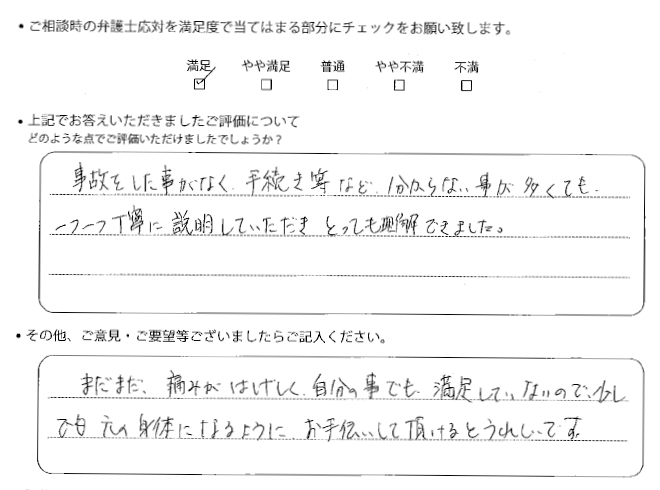 ・ご相談時の弁護士応対を満足度で当てはまる部分にチェックをお願い致します。
満足 やや満足 普通 やや不満 不満
・上記でお答えいただきましたご評価について
どのような点でご評価いただけましたでしょうか？
事故をした事がなく、手続き等など、分からない事が多くても、
一つ一つ丁寧に説明していただきとっても理解できました。
・その他、ご意見・ご要望等ございましたらご記入ください。
まだまだ、痛みがはげしく、自分の事でも、満足していないので、少し
でも元の身体になるように、お手伝いして頂けるとうれしいです。